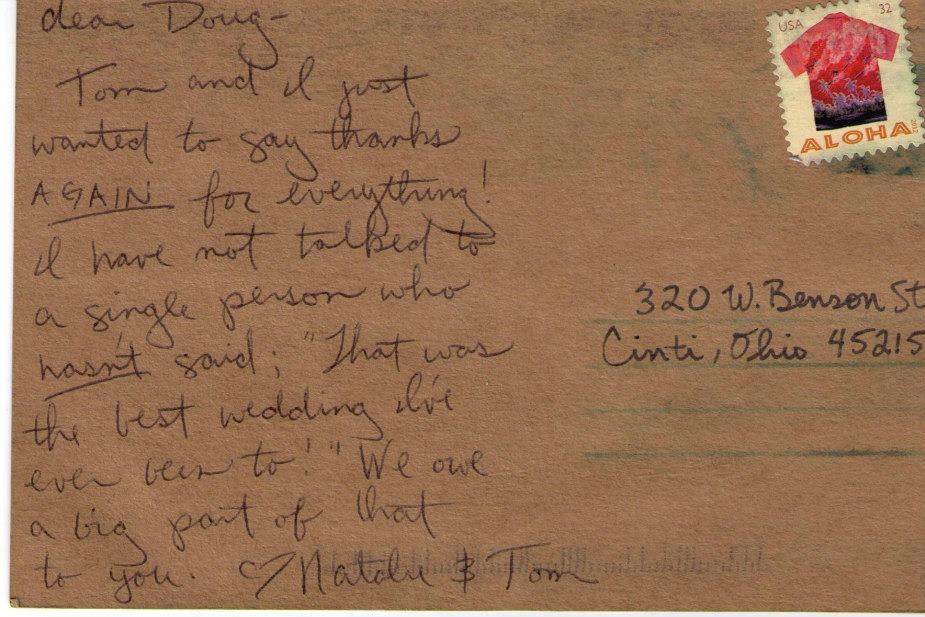 dear Doug-
Tom and I just
wanted to say thanks
AGAIN for everything!
I have not talked to
a single person who
hasn't said; "That was
the best wedding I've
ever been to!" We owe
a big part of that
to you. ♡ Natalie & Tom
USA 32
ALOHA
2012
320 W. Benson St
Cinti, Ohio 45215